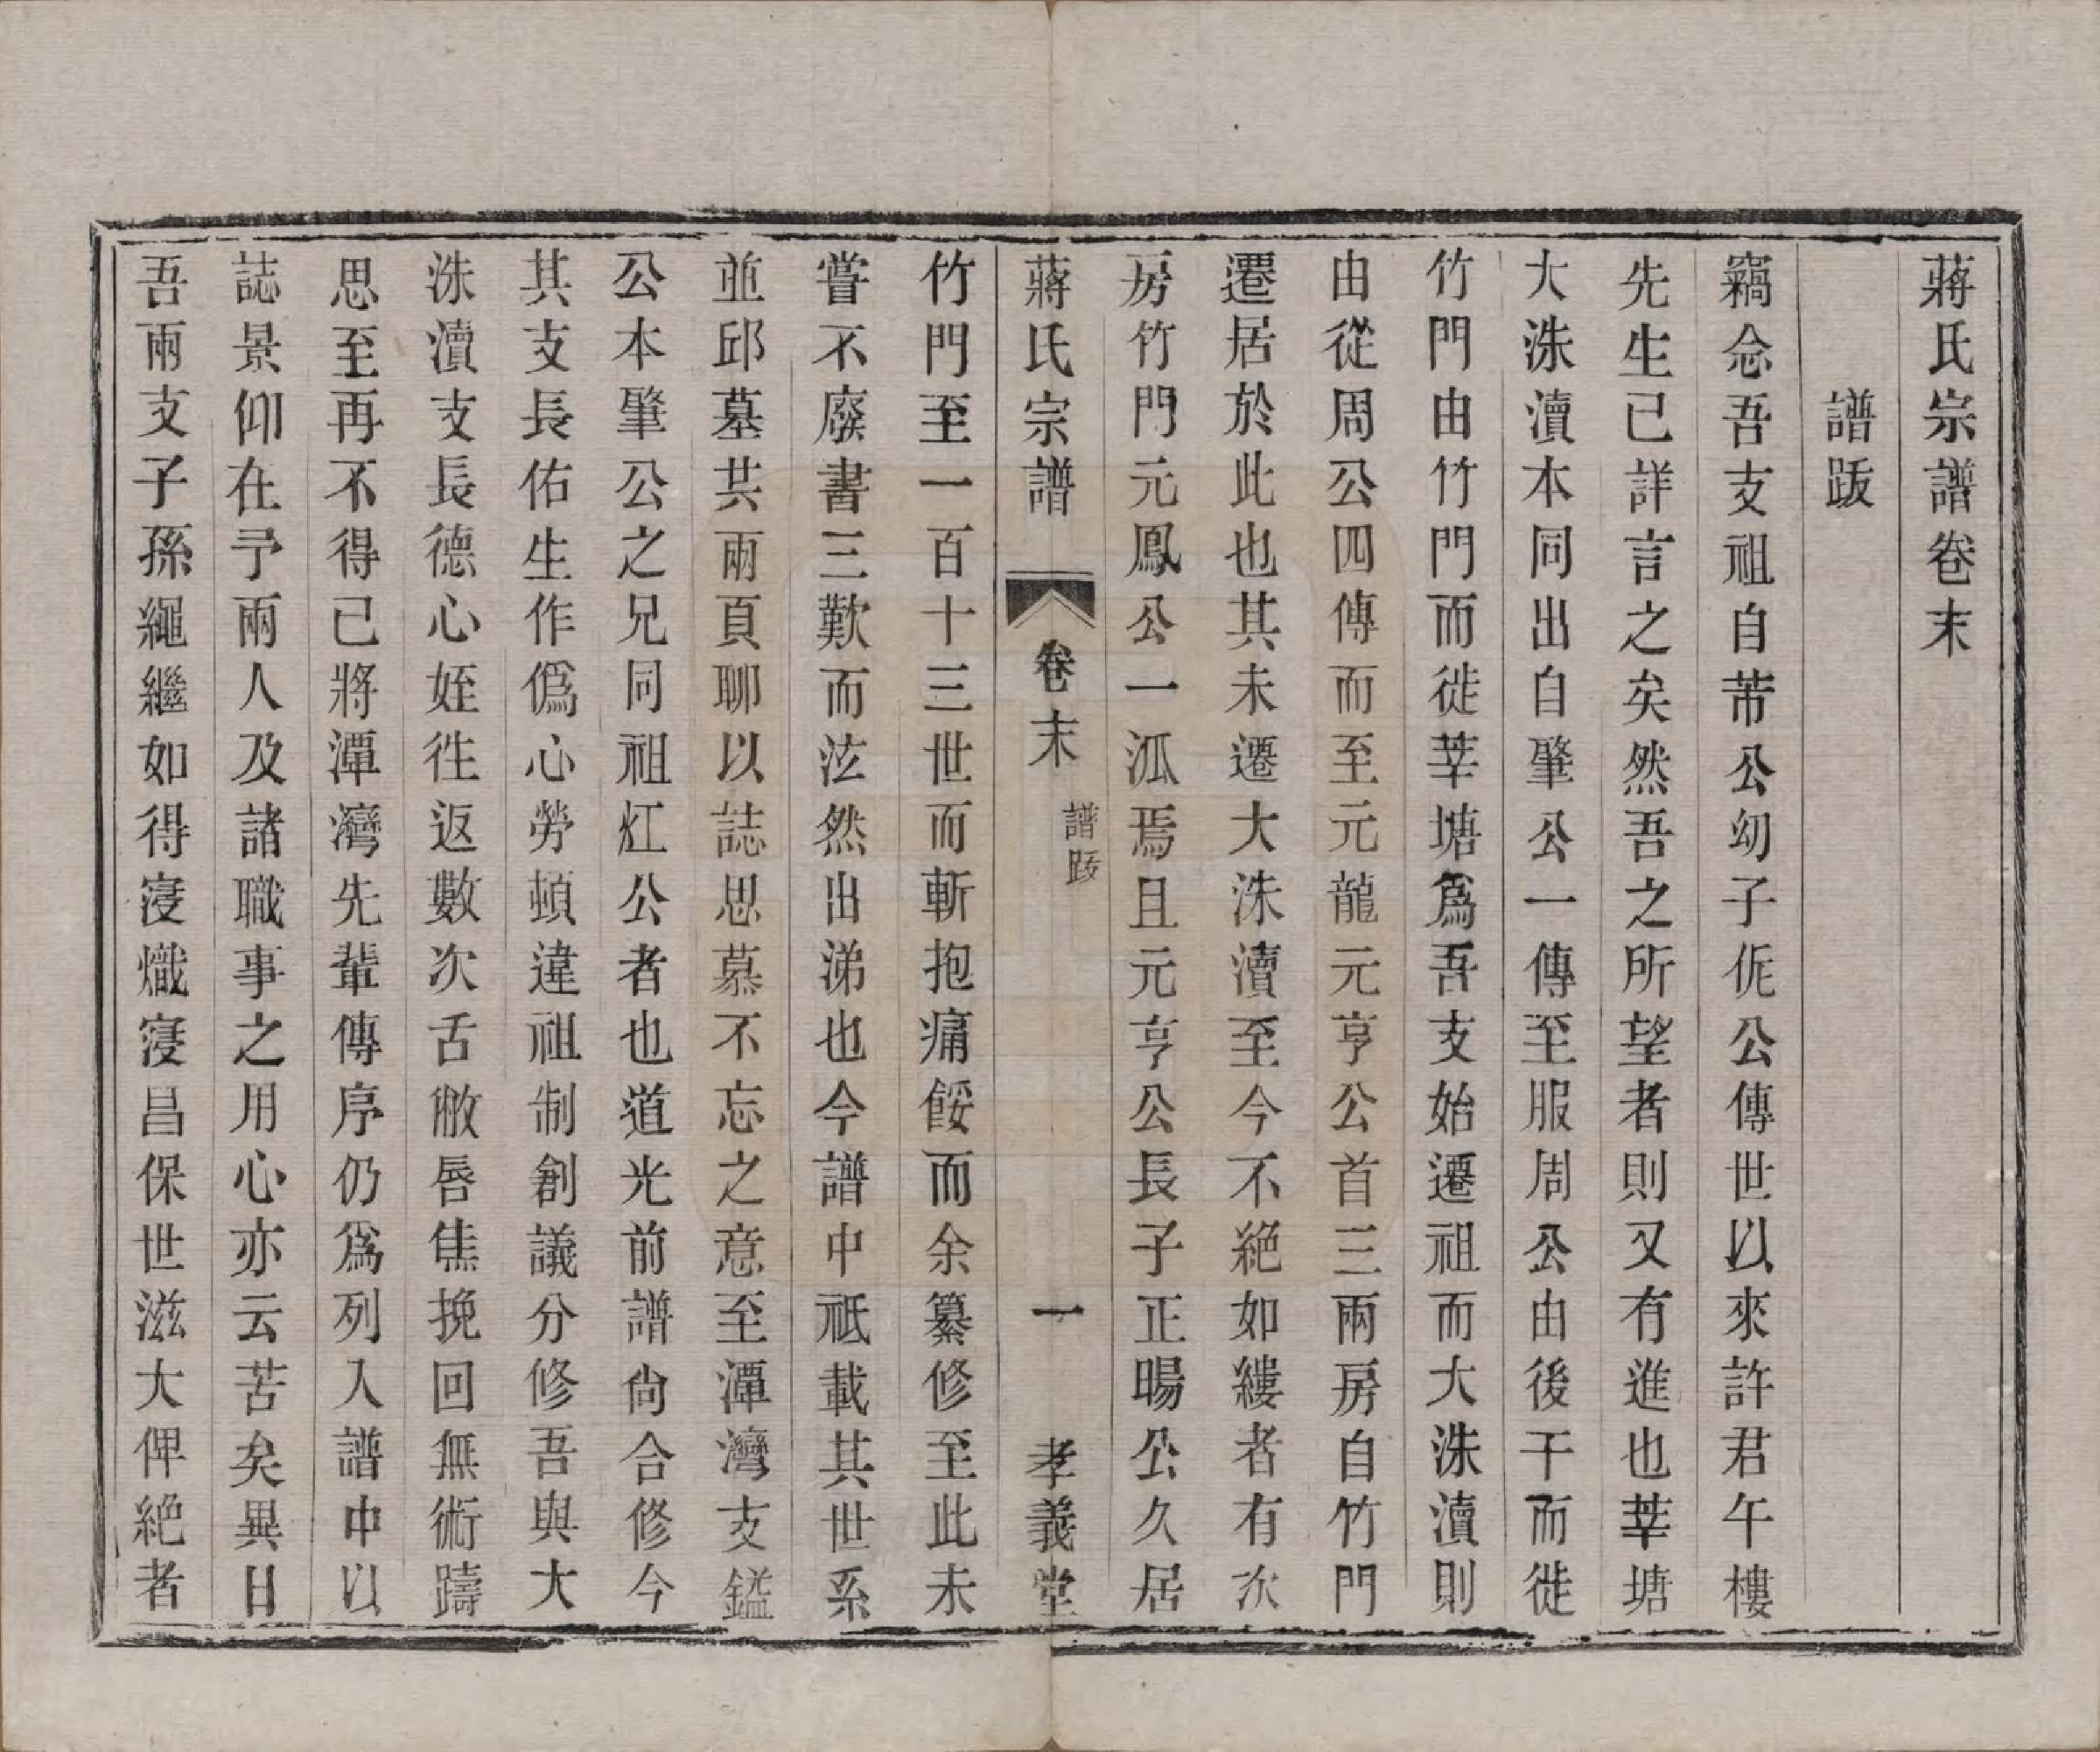 蔣氏宗譜卷末
譜跋
竊念吾支祖自芾公幼子伲公傳世以來許君午樓
先生已詳言之矣然吾之所望者則又有進也莘塘
大洙瀆本同出自肇公一傳至服周公由後干而徙
竹門由竹門而徙莘塘爲吾支始遷祖而大洙瀆則
由從周公四傳而至元龍元亨公首三兩房自竹門
遷居於此也其未遷大洙瀆至今不絕如縷者有次
房竹門元鳳公一泒焉且元亨公長子正暘公久居
蔣氏宗譜 卷末 譜跋 一 孝義堂
竹門至一百十三世而斬抱痛餒而余纂修至此未
嘗不廢書三歎而泫然出涕也今譜中祗載其世系
並邱墓共兩頁聊以誌思慕不忘之意至潭灣支鎰
公本肇公之兄同祖灴公者也道光前譜尙合修今
其支長佑生作僞心勞頓違祖制創議分修吾與大
洙瀆支長德心姪徃返數次舌敝唇焦挽回無術躊
思至再不得已將潭灣先輩傳序仍爲列入譜中以
誌景仰在予兩人及諸職事之用心亦云苦矣異日
吾兩支子孫繩繼如得寖熾寖昌保世滋大俾絕者